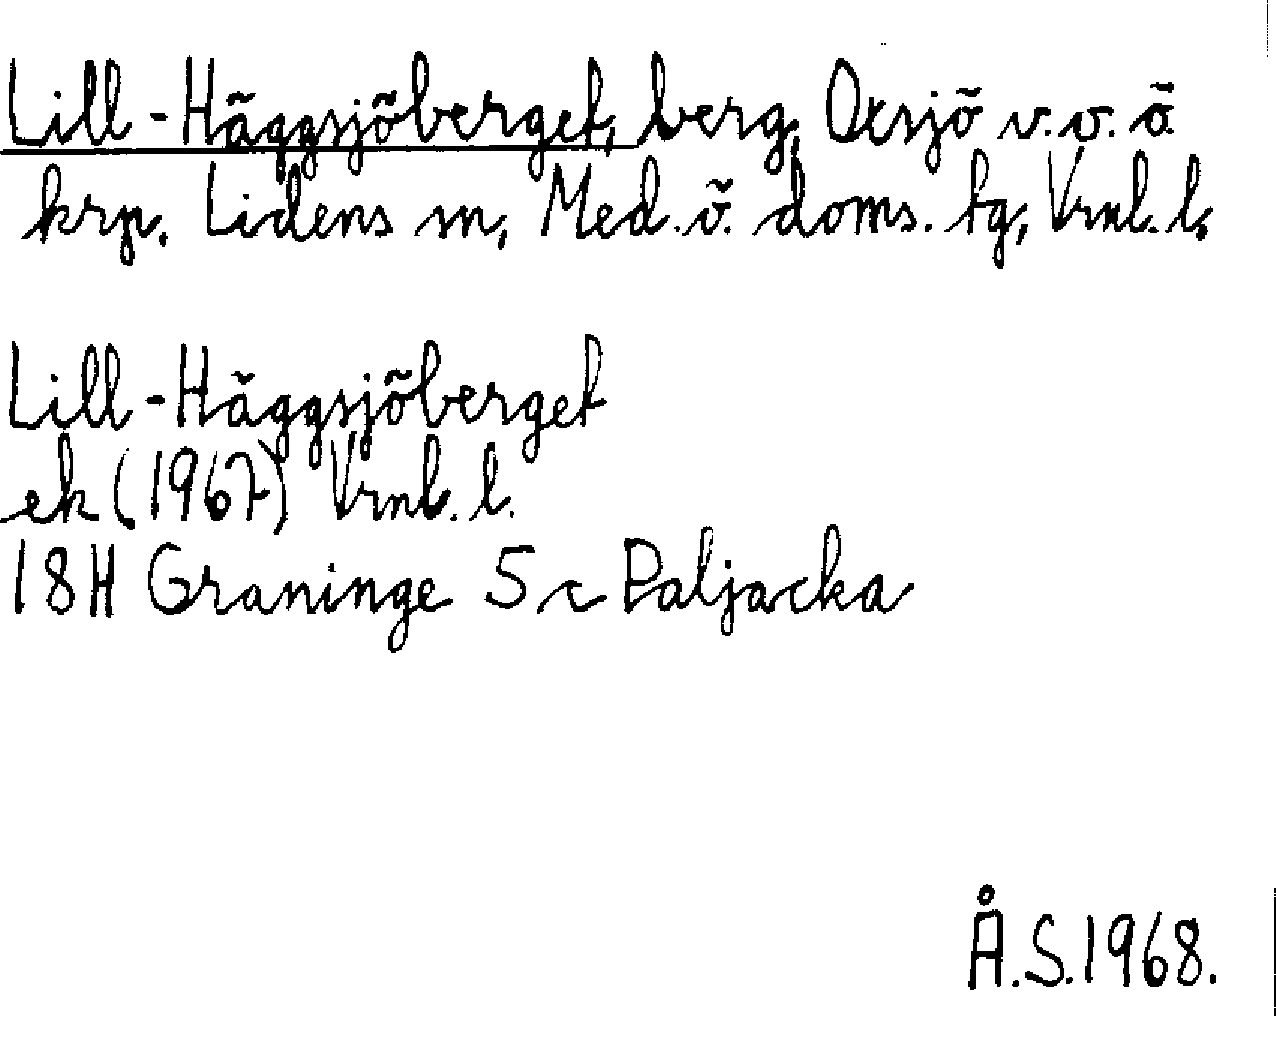 Lill-Häggsjöberget, berg, Oxsjö v. o. ö.
krp. Lidens sn, Med. v. doms. tg, Vrnl. l.
Lill-Häggsjöberget
ek (1967) Vrnl. l.
18H Graninge 5 c Paljacka
Å.S.1968.